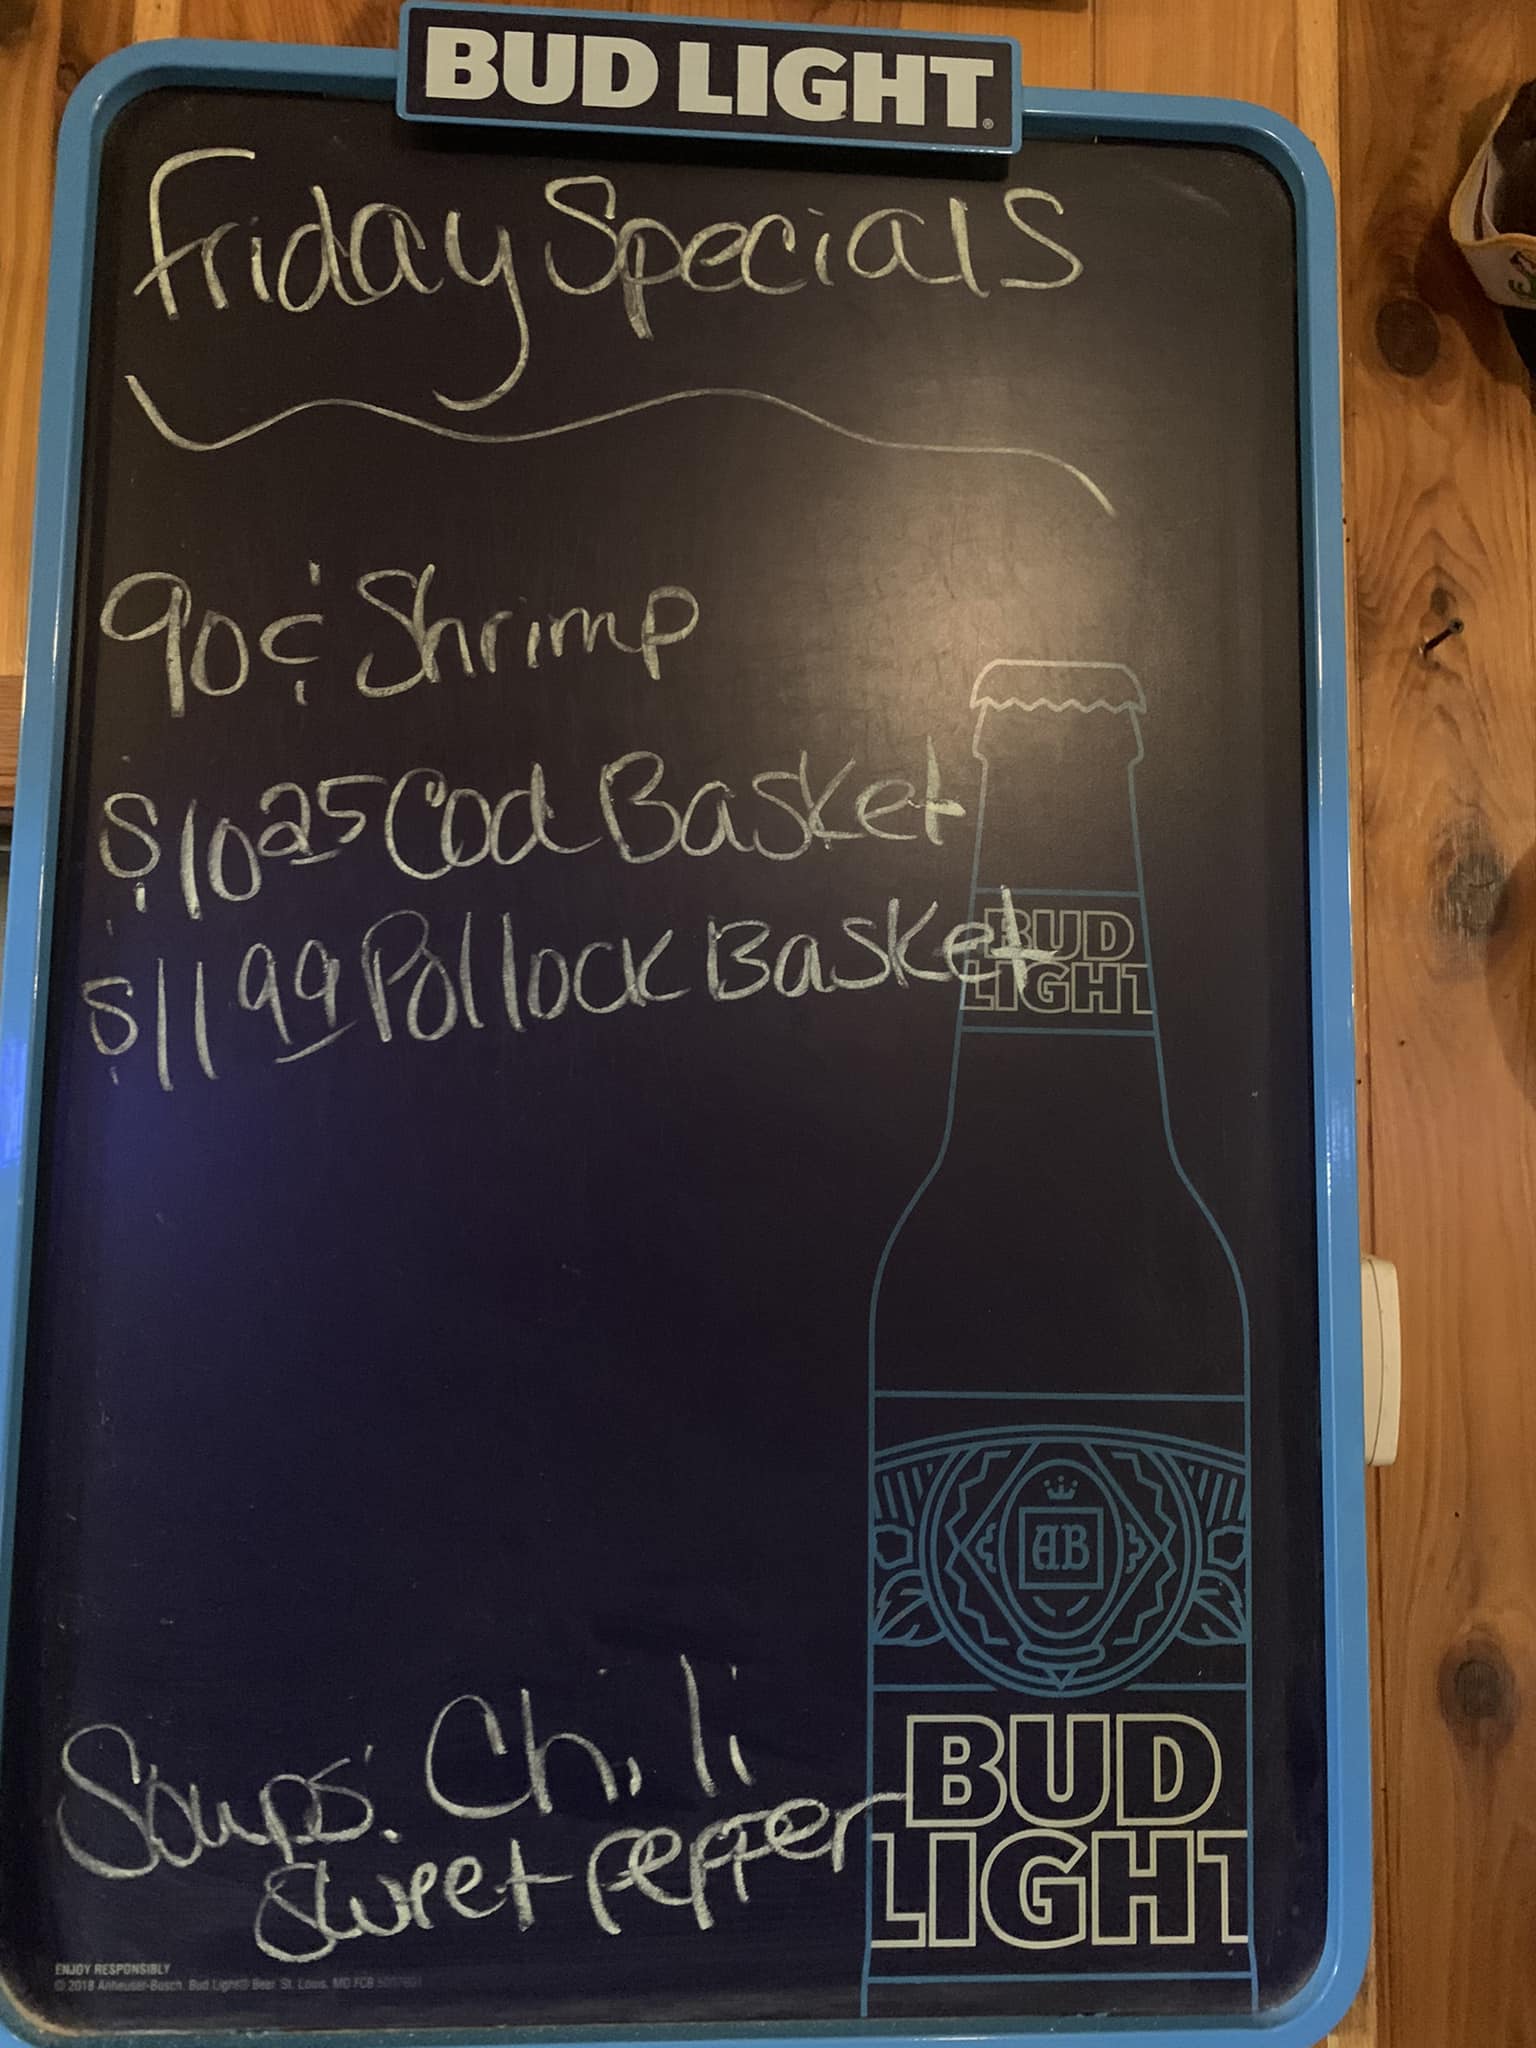 BUD LIGHT®
Friday Specials
90¢ Shrimp
$10.25 Cod Basket
$11.99 Pollock Basket
BUD
LIGHT
AB
Soups: Chili
Sweet Pepper
BUD
LIGHT
ENJOY RESPONSIBLY
© 2018 Anheuser-Busch, Bud Light® Beer, St. Louis, MO